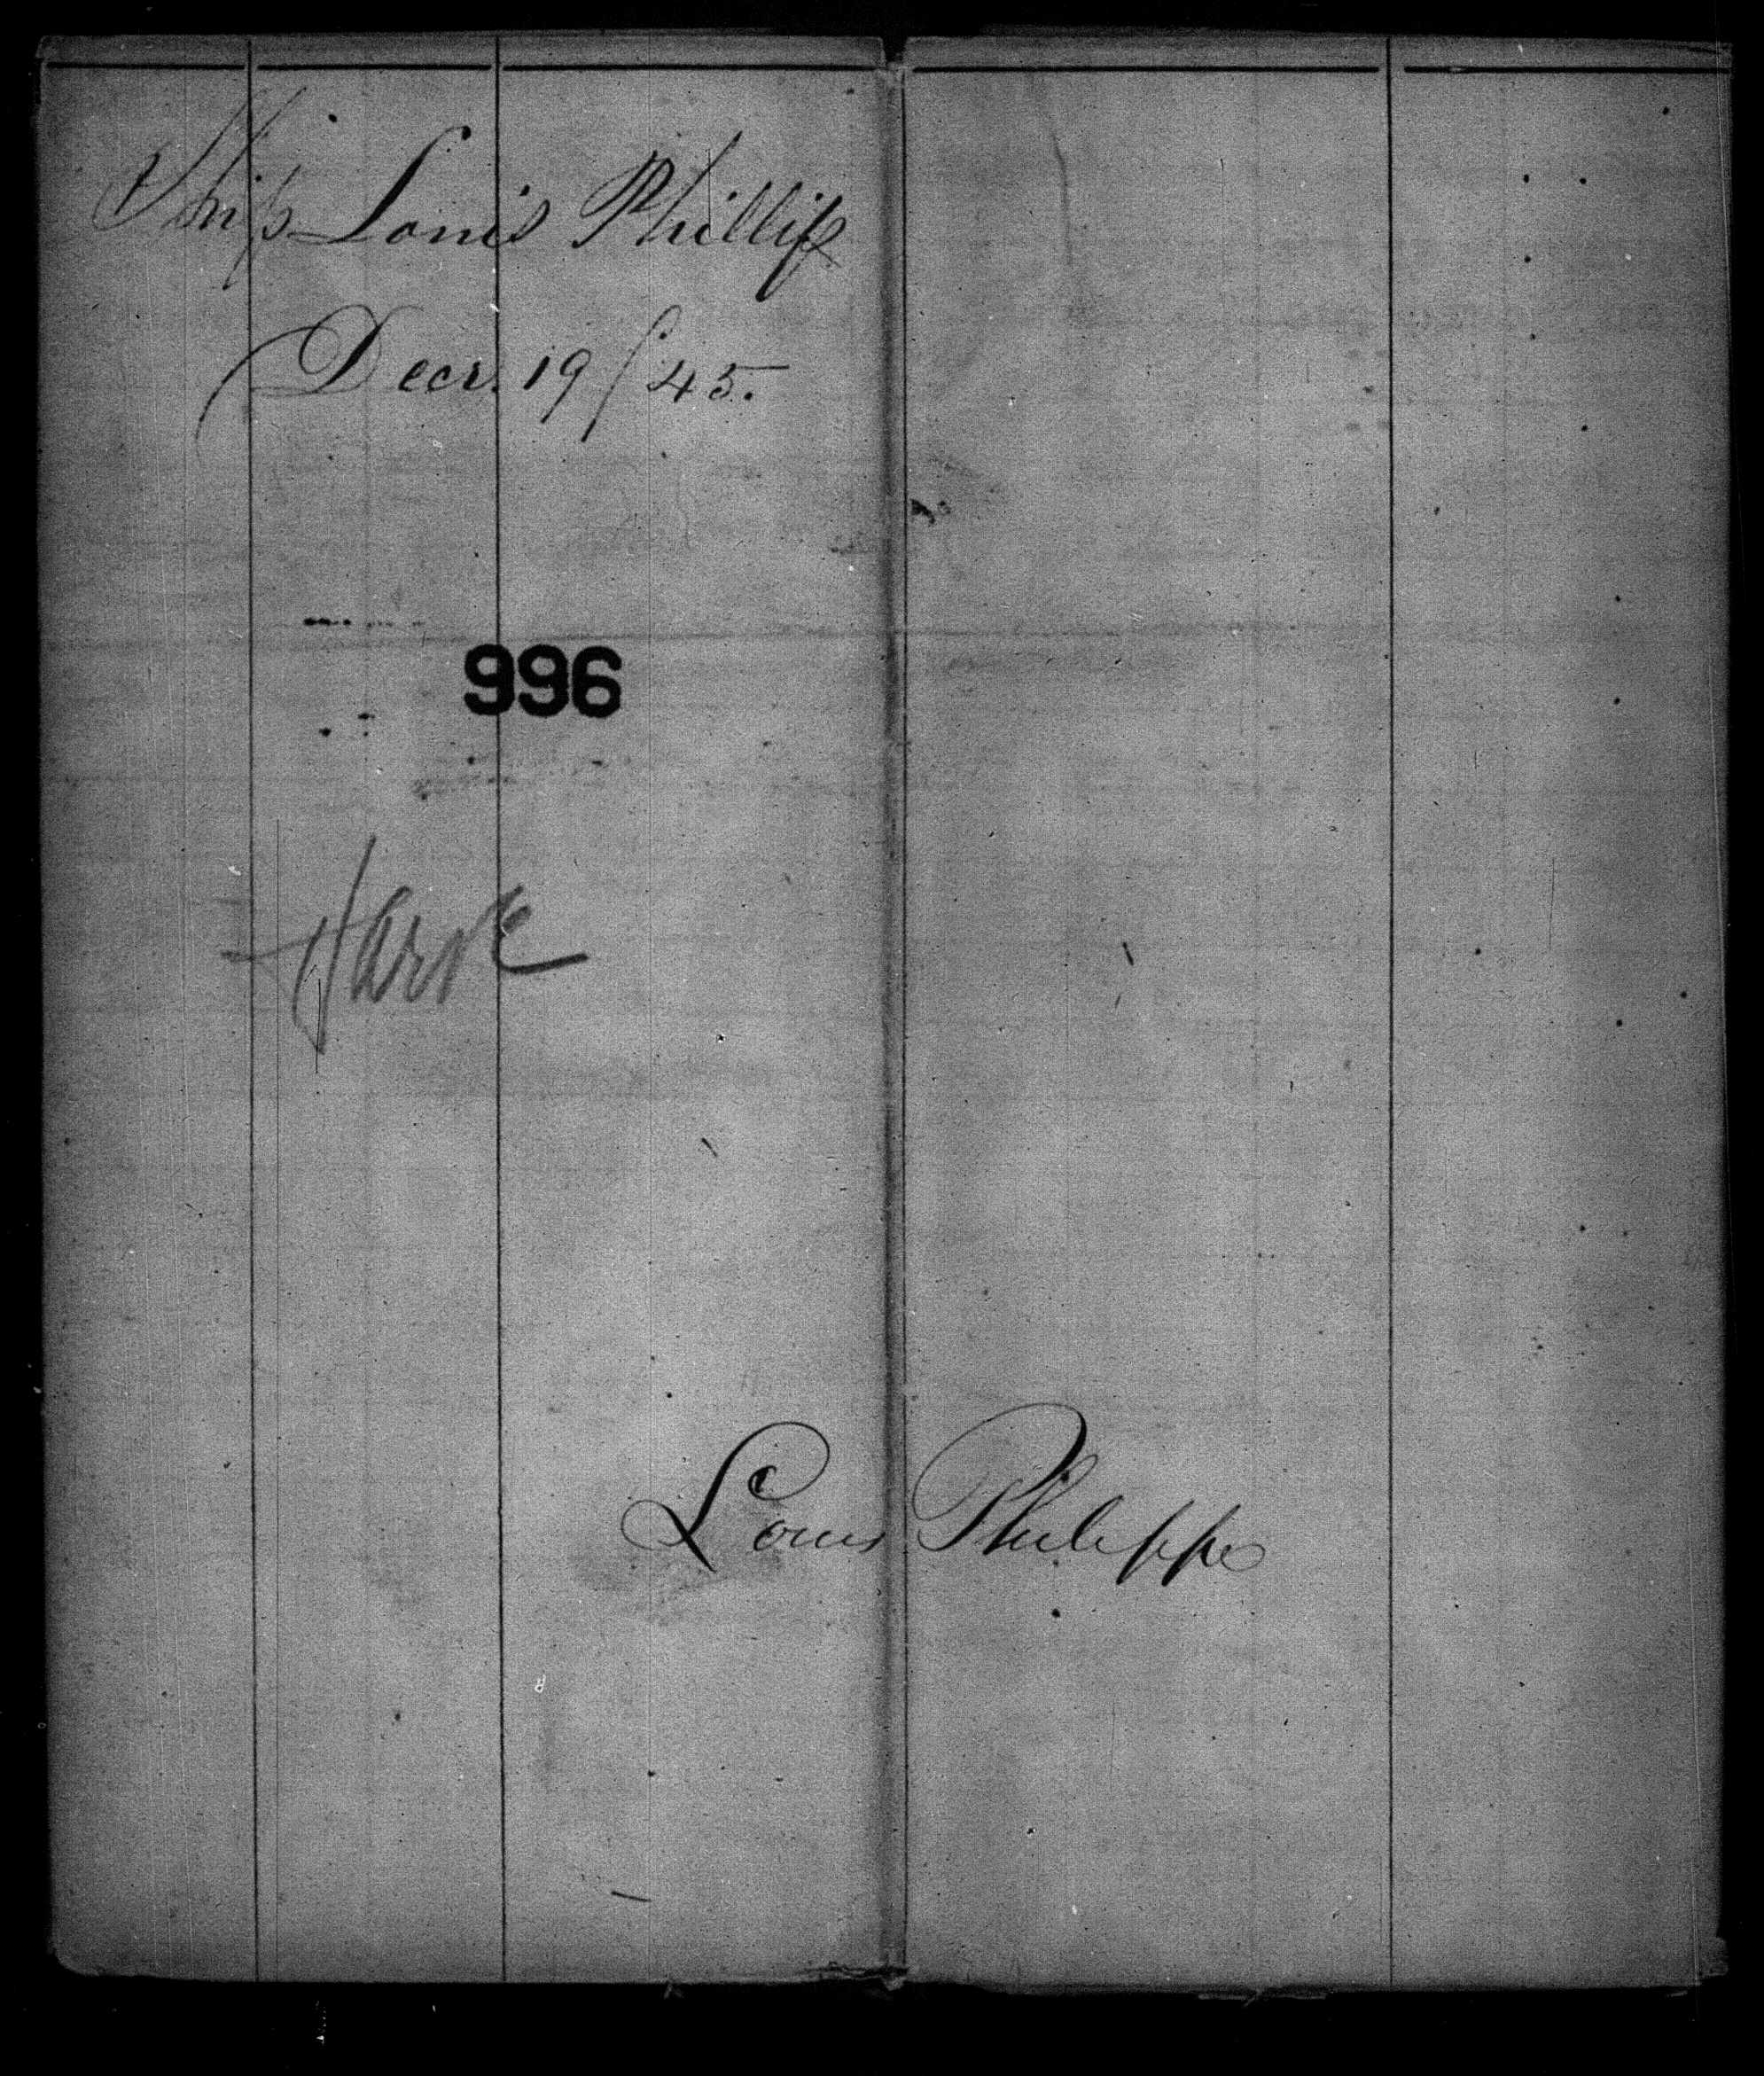 Ship Louis Phillip
Decr. 19/45.
996
Havre
Louis Philippe